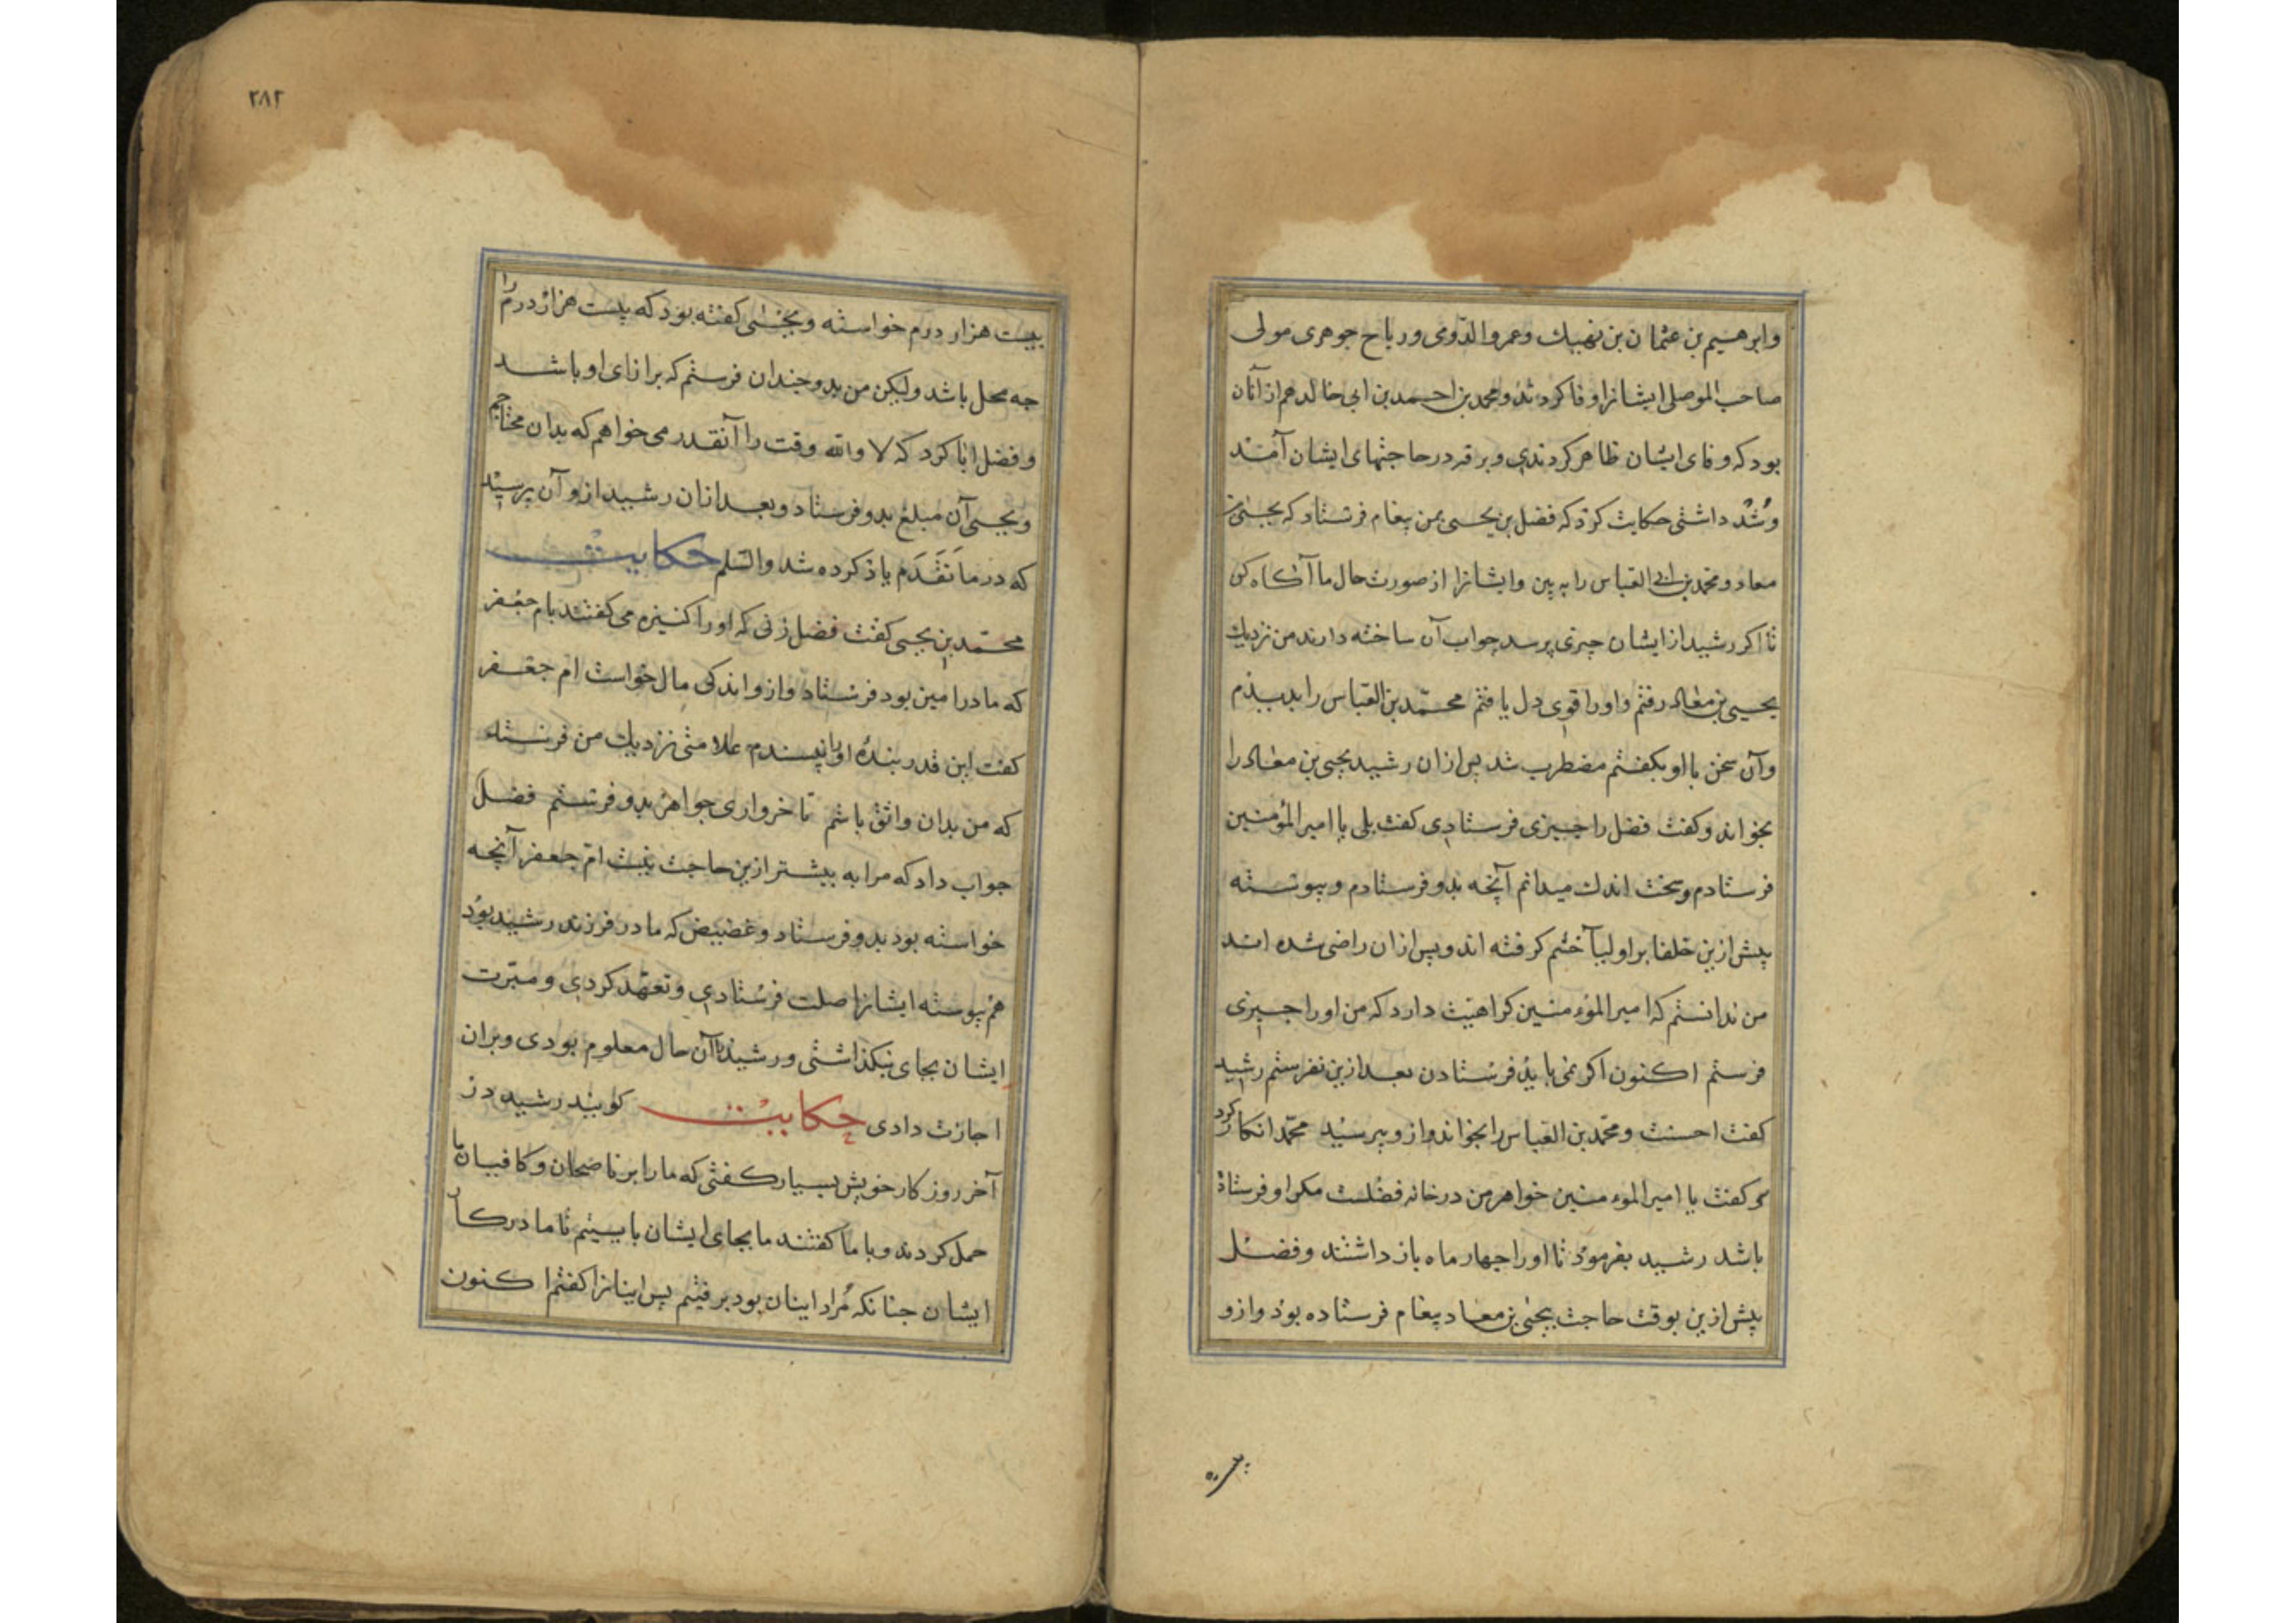 وابرهیم بن عثمان بن نهیك وعمرو الرومی ورباح جوهری مولی
صاحب الموصلی ایشانرا وفا کردند ومحمد بن احمد بن ابی خالد هم از آنان
بود که وفای ایشان ظاهر کردندی وبر قدر حاجتهای ایشان آمدند
داشتی حکایت کرد که فضل بن یحیی بمن پیغام فرستاد که یحیی بن
معاد ومحمد بن ابی العباس را به بین وایشانرا از صورت حال ما آگاه کن
تا اکر رشید از ایشان چیزی پرسد جواب آن ساخته دارند من نزدیك
یحیی بن معاد رفتم واورا قوی دل یافتم محمد بن العباس را بدیذم
وآن سخن با او بکفتم مضطرب شد پس ازان رشید یحیی بن معاد را
بخواند وکفت فضل را چیزی فرستادی کفت بلی یا امیر المؤمنین
فرستادم وسخت اندك میدانم آنچه بدو فرستادم وپیوسته
پیش ازین خلفا بر اولیا خشم کرفته اند وپس ازان راضی شده اند
من ندانستم که امیر المؤمنین کراهیت دارد که من اورا چیزی
فرستم اکنون اکر نمی باید فرستادن بعد ازین نفرستم رشید
کفت احسنت ومحمد بن العباس را بخواند وازو پرسید محمد انکار کرد
کفت یا امیر المؤمنین خواهر من در خانه فضلست مکر او فرستاد
باشد رشید بفرمود تا اورا چهار ماه باز داشتند وفضل
پیش ازین بوقت حاجت بیحیی بن معاد پیغام فرستاده بوذ وازو
بیست
۲۸۲
بیست هزار درم خواسته ویحیی کفته بود که بیست هزار درم را
چه محل باشد ولیکن من بدو چندان فرستم که برانای او باشد
وفضل ابا کرد که لا والله وقت را آنقدر می خواهم که بدان محتاجم
ویحیی آن مبلغ بدو فرستاد وبعد ازان رشید ازو آن پرسید
که در ما تقدم یاذ کرده شد والسلم حکایت
محمد بن یحیی کفت فضل زنی که اورا کنیزه می کفتند بام جعفر
که مادر امین بود فرستاد وازو اندکی مال خواست ام جعفر
کفت این قدر بنده اورا نپسندم علامتی نزدیك من فرستد
که من بدان واثق باشم تا خرواری جواهر بدو فرستم فضل
جواب داد که مرا به بیشتر ازین حاجت نیست ام جعفر آنچه
خواسته بود بدو فرستاد وغضیض که مادر فرزند رشید بود
هم پیوسته ایشانرا صلت فرستادی وتعهد کردی ومبرت
ایشان بجای نبکذاشتی ورشید را آن حال معلوم بودی وبران
اجازت دادی حکایت کویند رشید در
آخر روزکار خویش بسیار کفتی که ما را بر ناصحان وکافیان ما
حمل کردند وبا ما کفتند ما بجای ایشان بایستیم تا ما در کار
ایشان چنانکه مراد اینان بود برفتیم پس اینانرا کفتم اکنون